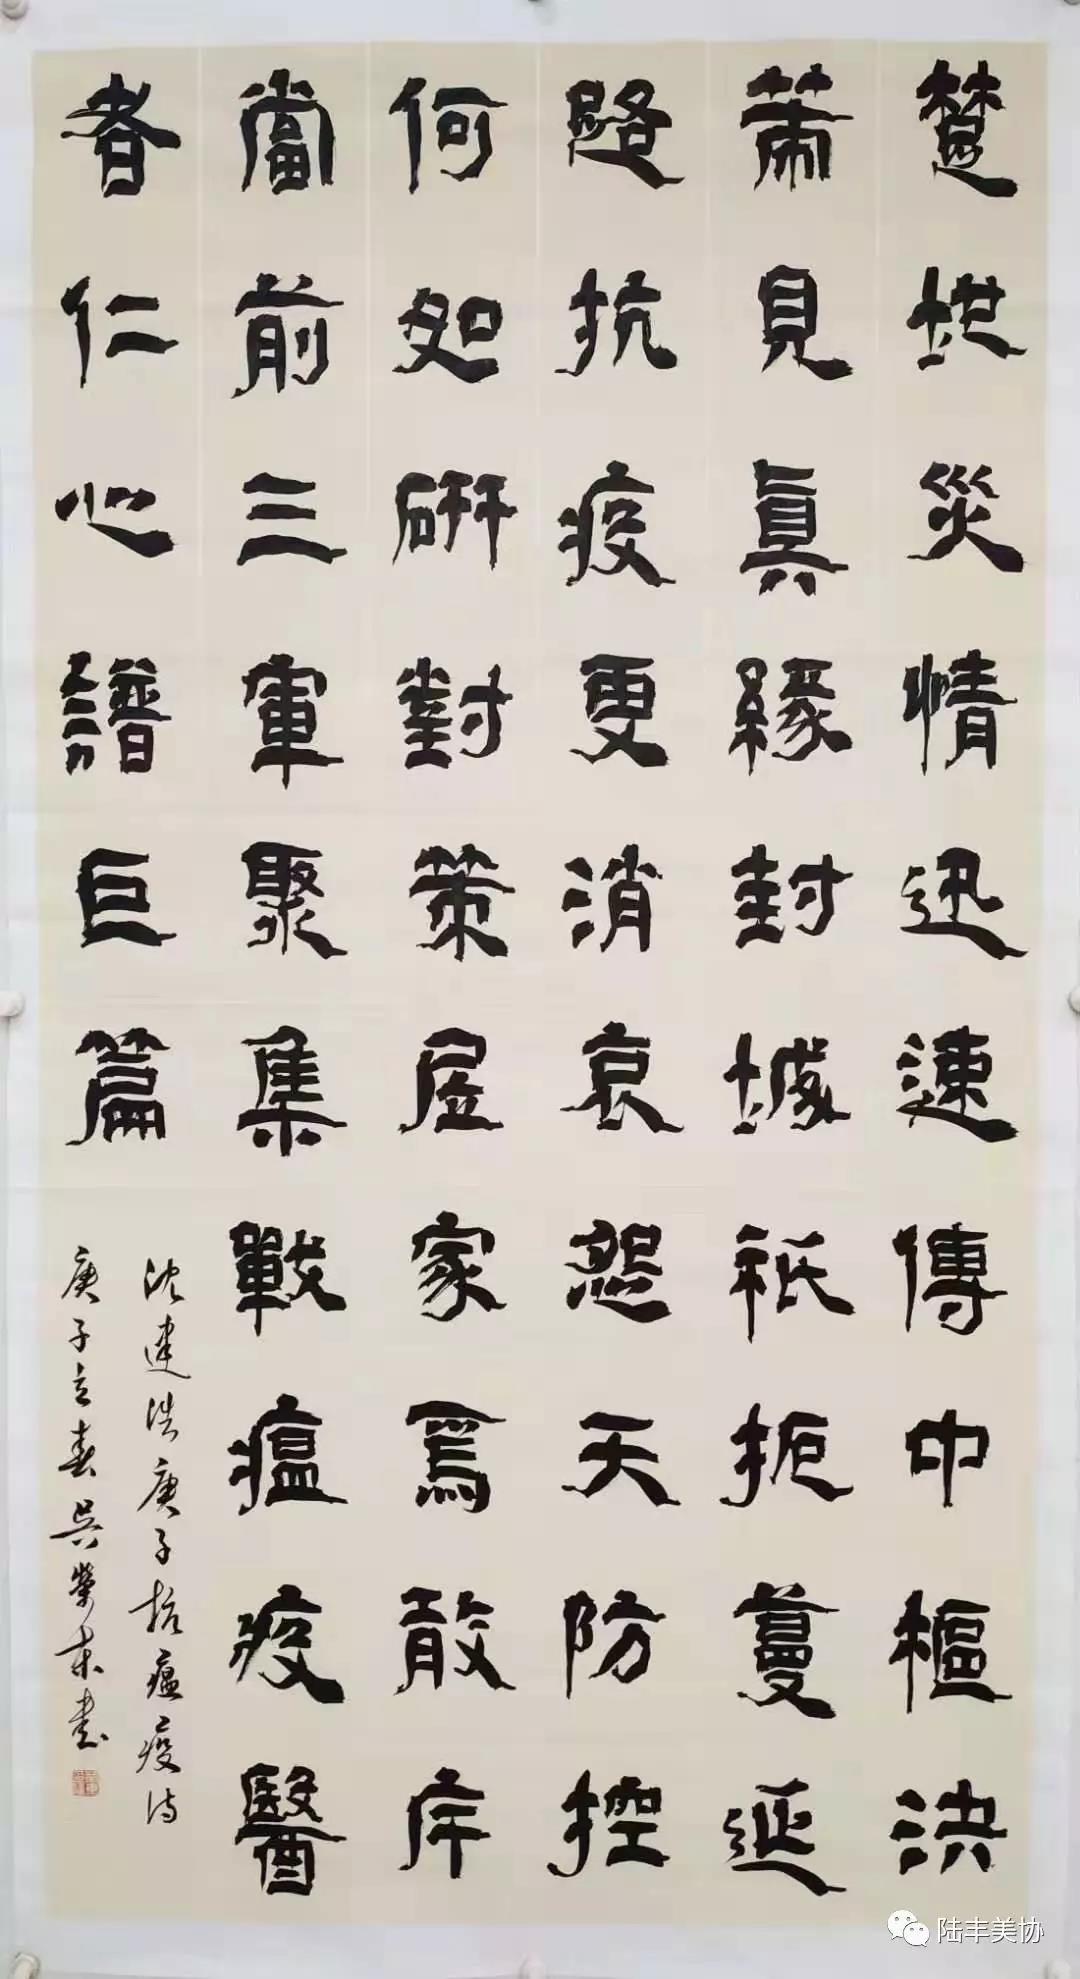 楚地災情迅速傳中樞決
策見真緣封城祇扼蔓延
路抗疫更消哀怨天防控
何如研對策居家焉敢斥
當前三軍聚集戰瘟疫醫
者仁心譜巨篇
沈建浩庚子抗瘟疫诗
庚子立春吴榮東书
陆丰美协